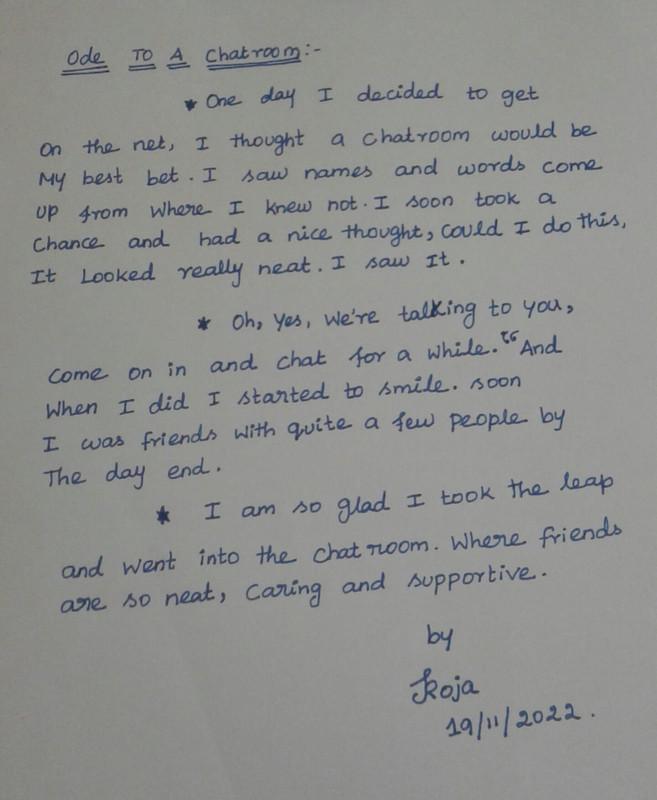 Ode To A Chatroom:-
* One day I decided to get
on the net, I thought a chatroom would be
My best bet. I saw names and words come
up from where I knew not. I soon took a
chance and had a nice thought, could I do this,
It Looked really neat. I saw It.
* Oh, yes, we're talking to you,
come on in and chat for a while. “And
when I did I started to smile. soon
I was friends with quite a few people by
The day end.
* I am so glad I took the leap
and went into the chatroom. Where friends
are so neat, caring and supportive.
by
Roja
19/11/2022.